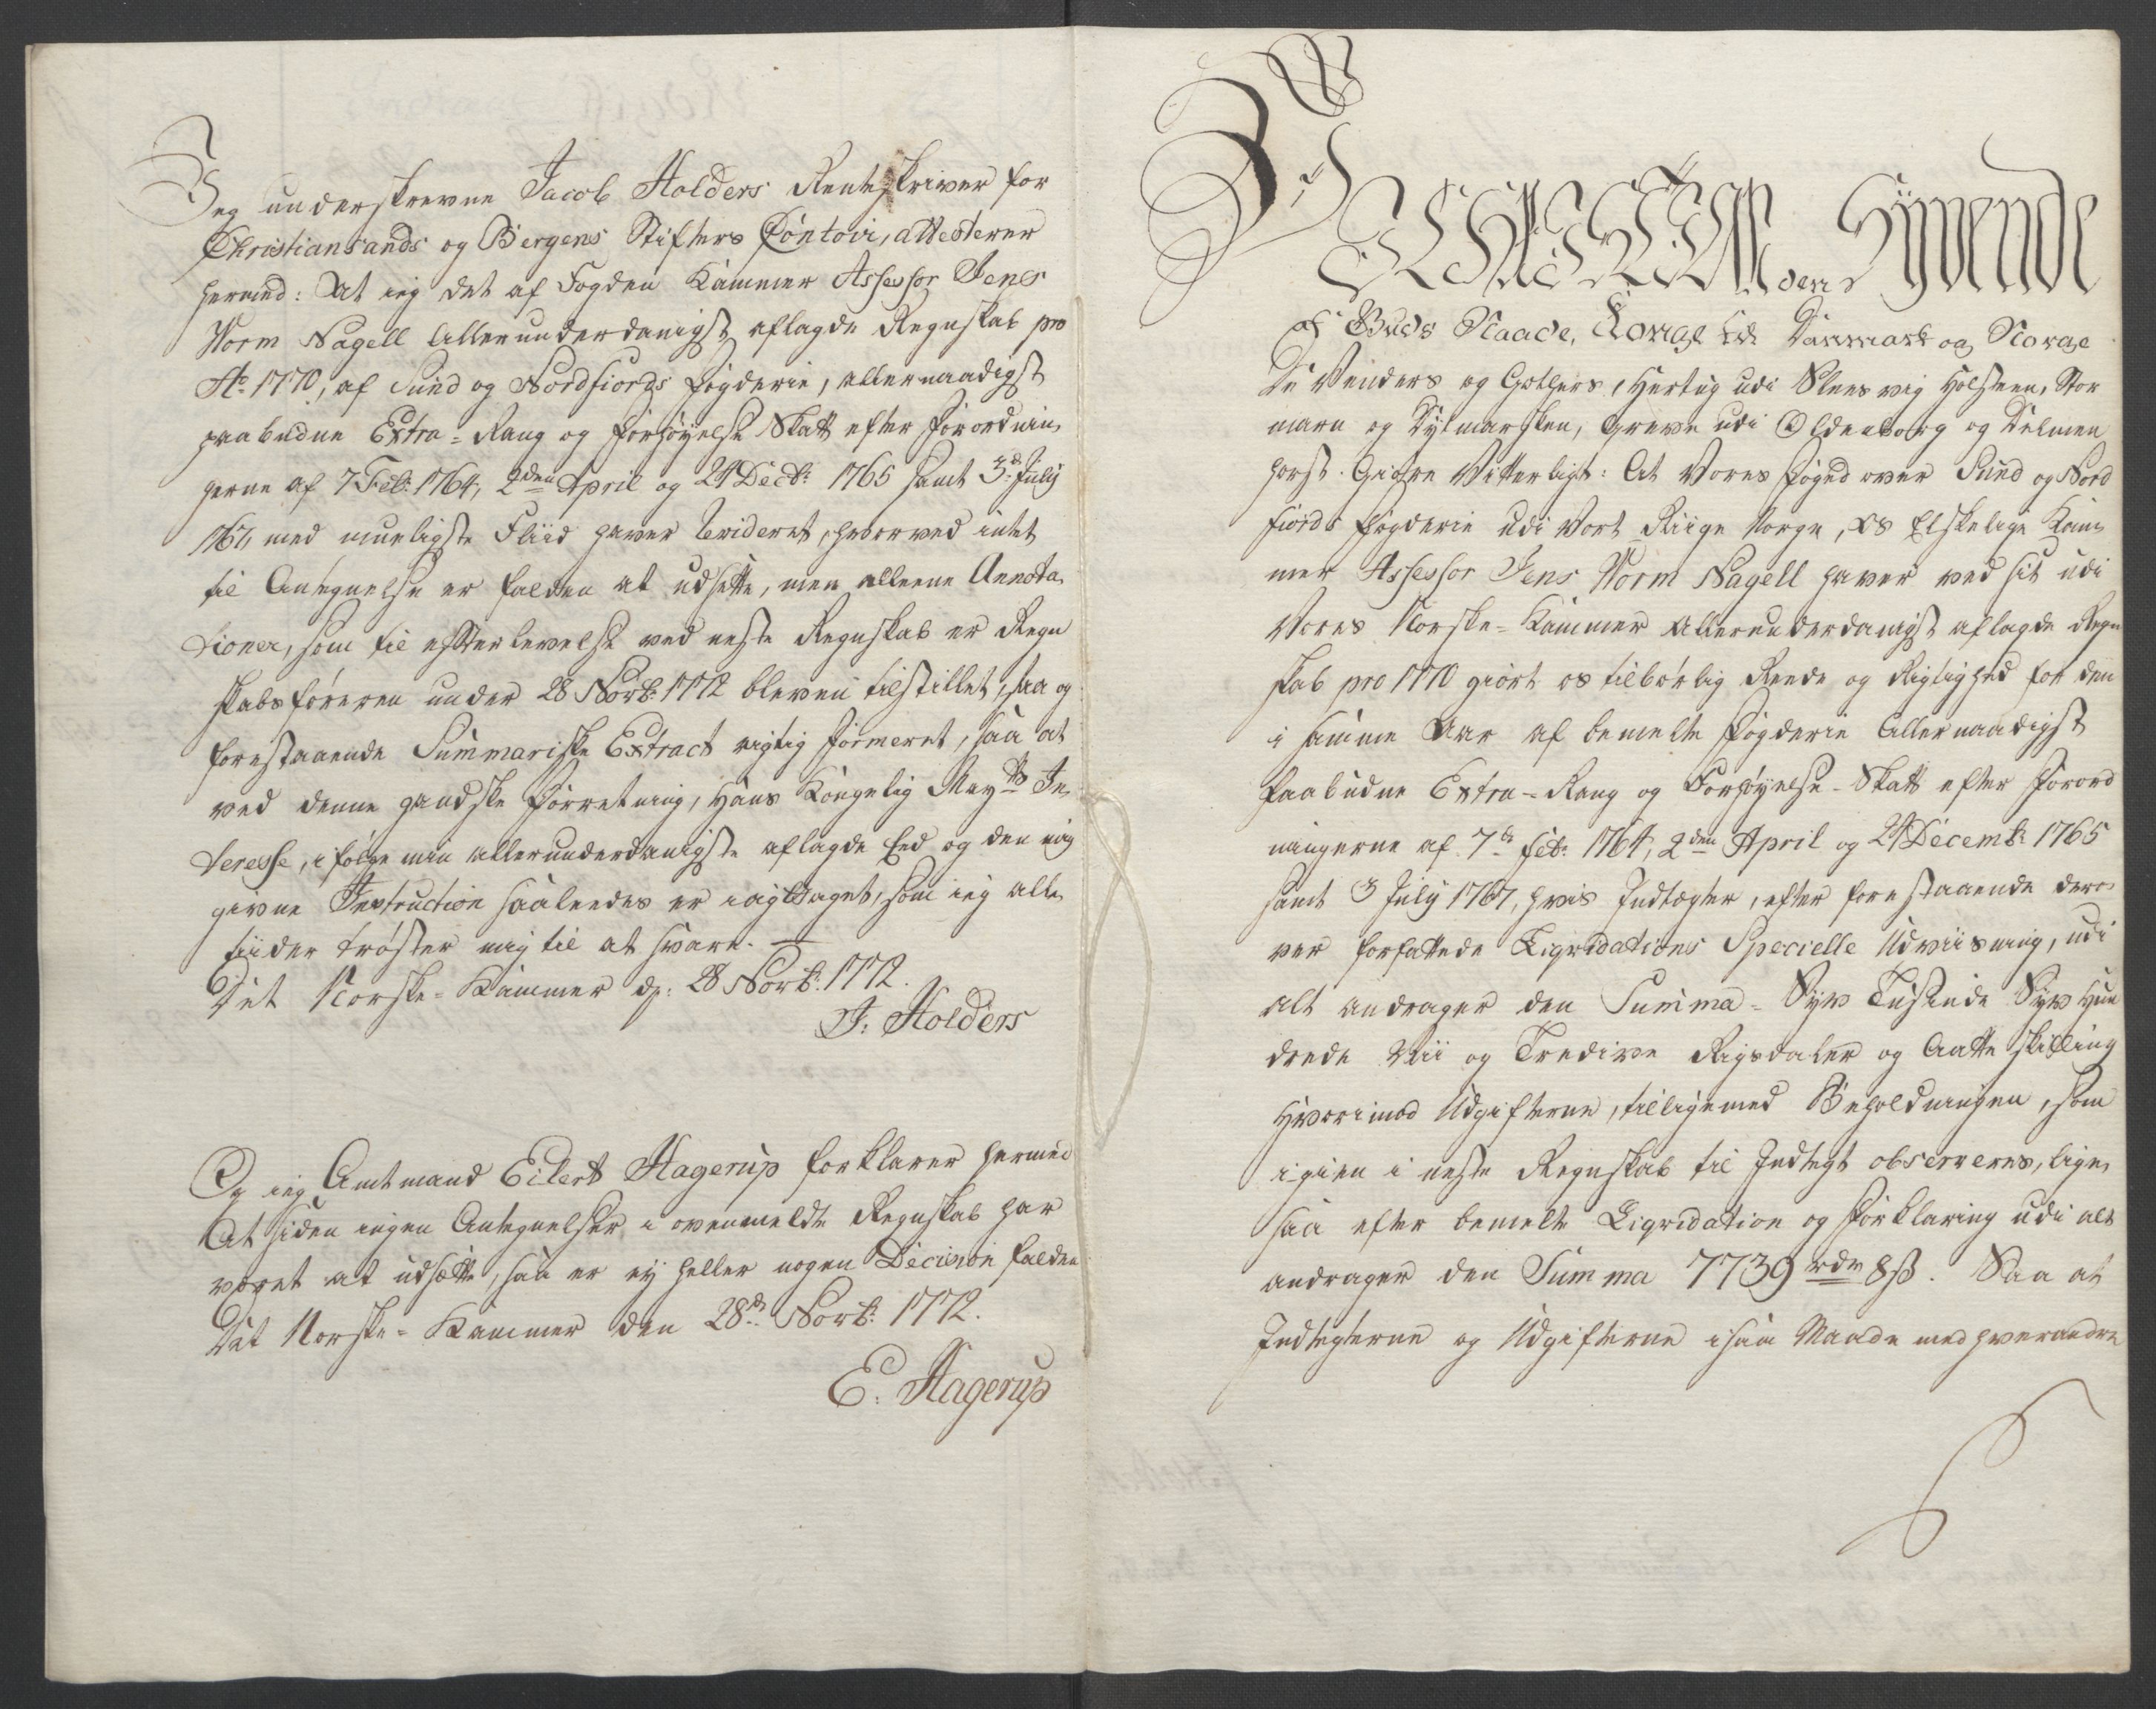 Jeg underskrevne Jacob Holders Renteskriver for
Christiansands og Bergens Stifters Contoir, attesterer
hermed: At ieg det af Fogden Kammer Assessor Jens
Worm Nagell Allerunderdanigst aflagde Regnskab pro
Ao 1770, af Sund og Nordfiords Fogderie, allernaadigst
paabudne Extra-Rang og Forhøyelse Skatt efter Forordnin,
gerne af 7 Febr: 1764, 2den April og 24 Decbr: 1765 samt 3de July
1767, med mueligste Fliid haver Revideret, hvorved intet
til Antegnelse er falden at udsette, men alleene Annota,
tioner, som til efterlevelse ved neste Regnskab er Regn
skabsføreren under 28 Novbr: 1772 bleven tilstillet, saa og
forestaaende Summariske Extract rigtig formeret, saa at
ved denne gandske Forretning, Hans Kongelig Mayts In,
teresse, ifølge min allerunderdanigste aflagde Eed og den mig
givne Instruction saaledes er iagttaget, som ieg alle,
tiider trøster mig til at svare.
Det Norske-Kammer d: 28 Novbr: 1772.
J: Holders
Og ieg Amtmand Eilert Hagerup forklarer hermed
At siden ingen Antegnelser i ovenmeldte Regnskab har
været at udsætte, saa er ey heller nogen Decision falden
Det Norske-Kammer den 28de Novbr: 1772.
E: Hagerup
Vi
CHRISTIAN den Syvende
af Guds Naade, Konge til Danmark og Norge
De Venders og Gothers, Hertug udi Sleesvig Holsteen, Stor
marn og Dytmarsken, Greve udi Oldenborg og Delmen
horst. Giøre Vitterligt: At Vores Foged over Sund og Nord
fiords Fogderie udi Vort Riige Norge, OS Elskelige Kam
mer Assessor Jens Worm Nagell haver ved sit udi
Vores Norske-Kammer Allerunderdanigst aflagde Regn
skab pro 1770 giort os tilbørlig Reede og Rigtighed for den
i samme Aar af bemelte Fogderie Allernaadigst
Paabudne Extra-Rang og Forhøyelse-Skatt efter Forord
ningerne af 7de Febr: 1764, 2den April og 24 Decembr: 1765
samt 3 July 1767, hvis Indtægter, efter forestaaende dero,
ver forfattede Liqvidations Specielle Udviisning, udi
alt andrager den Summa-Syv Tusinde Syv Hun
drede Nii og Tredive Rigsdaler og Aatte skilling
Hvorimod Udgifterne, tilligemed Beholdningen, som
igien i neste Regnskab til Indtegt observeres, lige,
saa efter bemelte Liqvidation og Forklaring udi alt
andrager den Summa 7739 rdr 8 ß. Saa at
Indtegterne og Udgifterne i saa Maade med hverandre